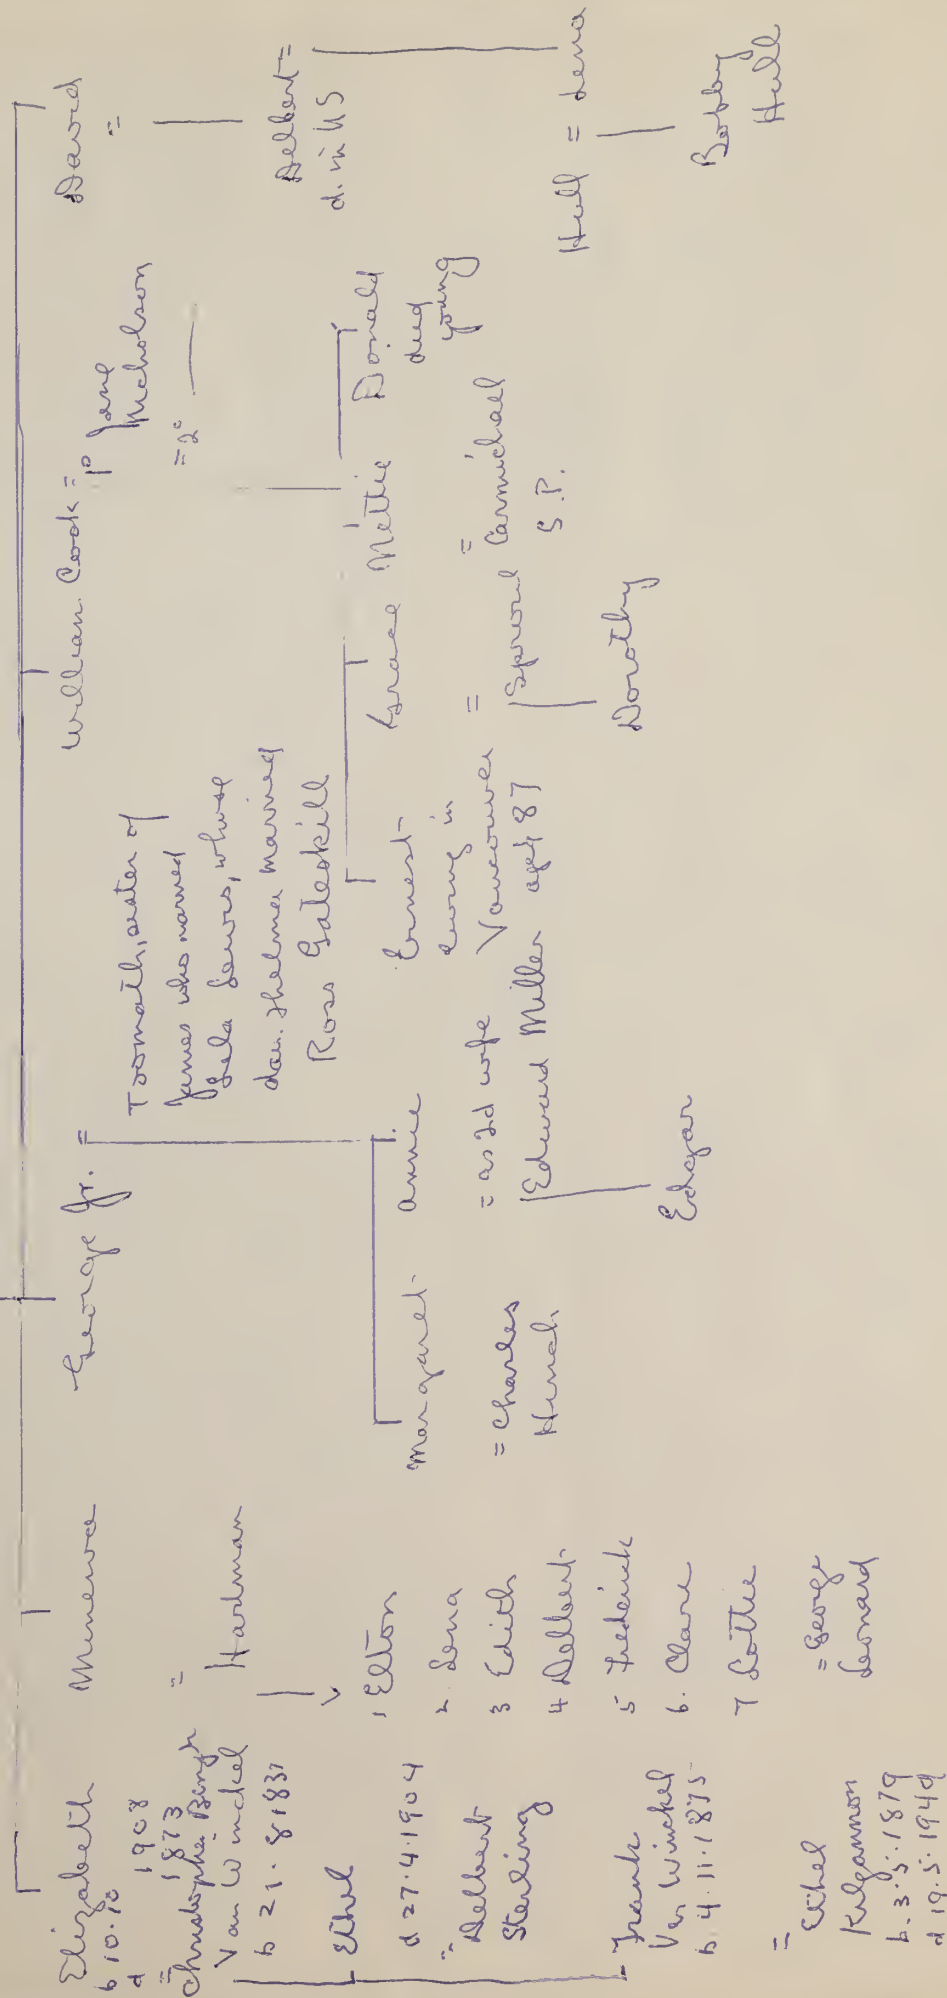 Elizabeth
b 10.10
d 1908
= 1873
Christopher Bingh
Van Winckel
b 21.8.1831
Ethel
d 27.4.1904
= Delbert
Sterling
Frank
Van Winckel
b. 4.11.1875
=
Ethel
Kilgannon
b. 3.5.1879
d 19.5.1949
Minerva
=
Hartman
1 Elton
2. Lena
3 Edith
4 Delbert
5 Frederick
6. Clare
7 Lottie
= George
Leonard
George Jr. =
Toomath, sister of
James who married
Lela Sowers, whose
dau. Thelma married
Ross Gateskill
Margaret
= Charles
Hinch
Annie
= as 2d wife
Edward Miller
Edgar
William Cook = 1º Jane
Nicholson
= 2º
Ernest
living in
Vancouver
aged 87
Grace
=
Sproul
Dorothy
Nettie
=
Carmichael
S.P.
Donald
died
young
David
=
Delbert =
d. in US
Hull = Lena
Bobby
Hull